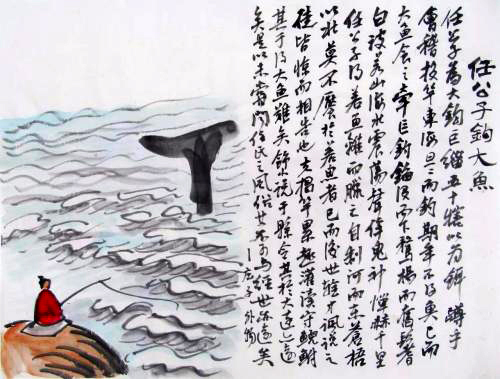 任公子钓大魚
任公子為大鈎巨緇五十犗以為餌蹲乎
會稽投竿東海旦旦而釣期年不得魚已而
大魚食之牽巨鈎錎沒而下鶩揚而奮鬐
白波若山海水震蕩聲侔鬼神憚赫千里
任公子得若魚離而腊之自制河而東蒼梧
以北莫不厭若魚者已而後世輇才諷說之
徒皆惊而相告也夫揭竿累趣灌瀆守鯢鮒
其于得大魚難矣飾小說于縣令其於大達亦遠
矣是以未嘗聞任氏之風俗其不可與經世亦遠矣
庄子外物